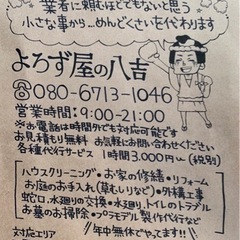 業者に頼むほどでもないと思う
小さな事から…めんどくさいを代わります
よろず屋の八吉
☎080-6713-1046
営業時間：9:00-21:00
※お電話は時間外でも対応可能です
お見積もり無料 お気軽にお問い合わせください
各種代行サービス 1時間3.000円〜（税別）
ハウスクリーニング・お家の修繕・リフォーム
お庭のお手入れ（草むしりなど）・外構工事
蛇口、水廻りの交換・水廻り、トイレのトラブル
お墓のお掃除・プラモデル製作代行など
年中無休でやってます!!
対応エリア